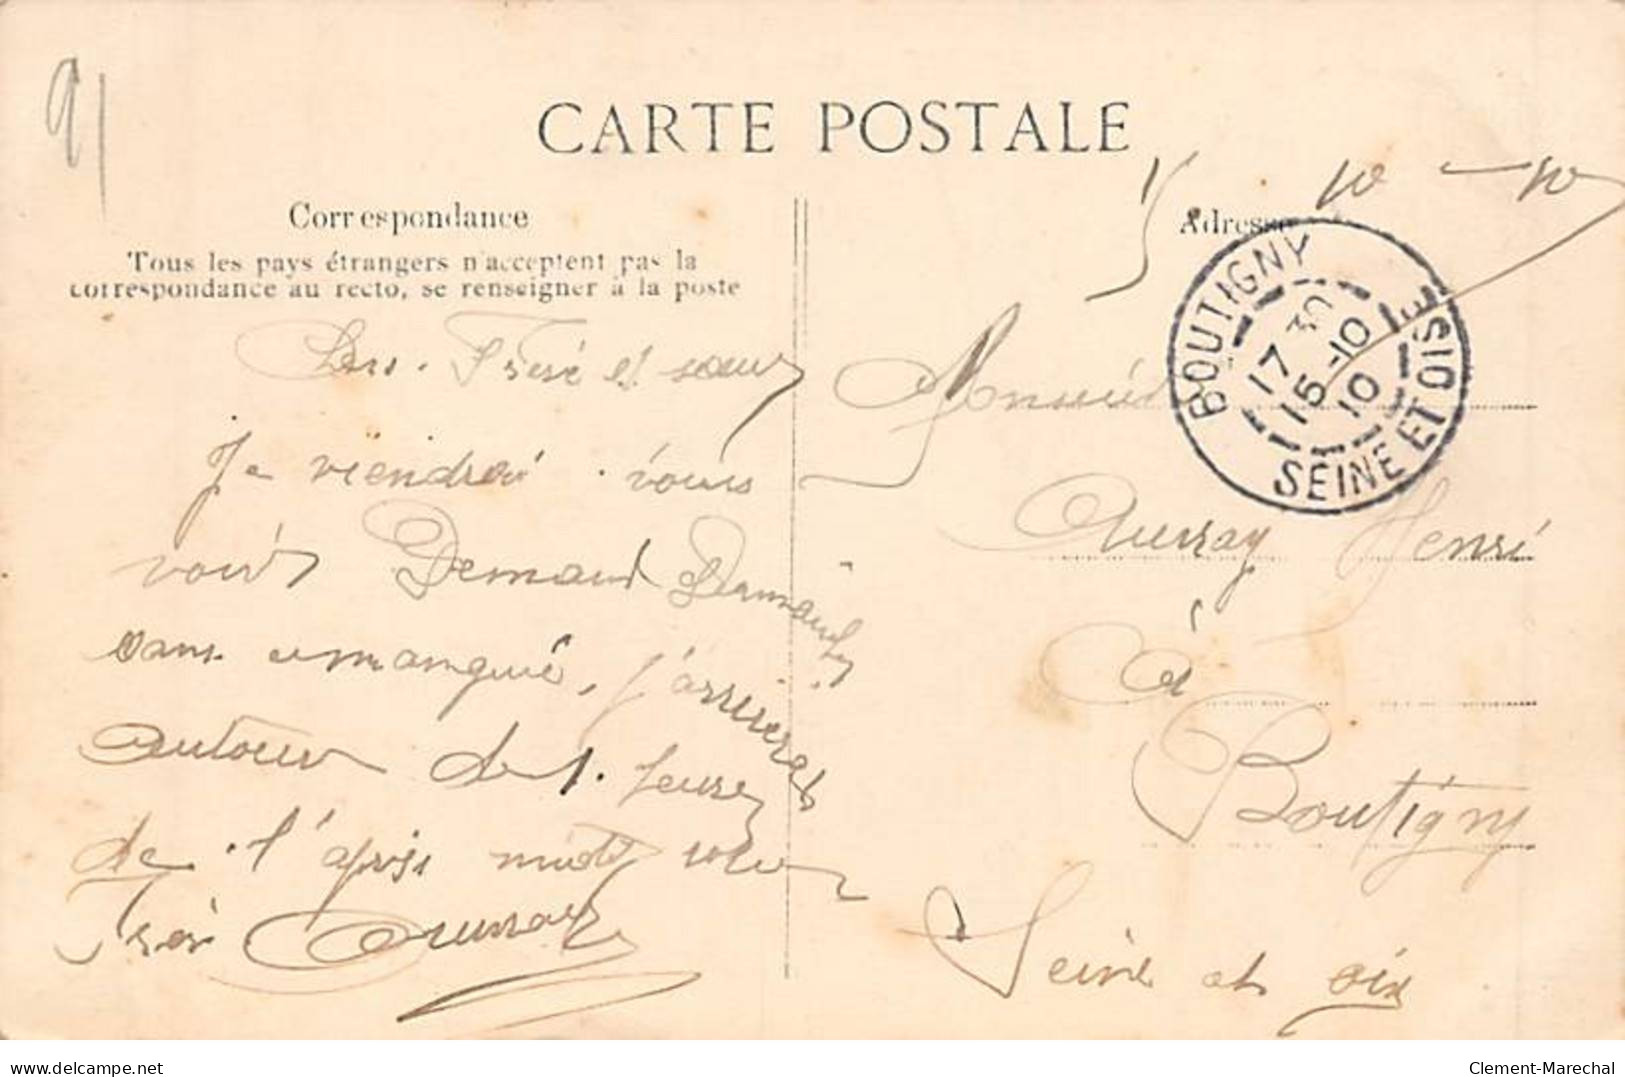 91
CARTE POSTALE
Correspondance
Tous les pays étrangers n'acceptent pas la
correspondance au recto, se renseigner à la poste
Frere et sœur
Je viendrai vous
voir Demand Dimanche
sans manqué, j'arriverai
autour de 1. heure
de l'après midi votre
Frèr Auvray
Adresse
15 10 - 10
BOUTIGNY
17 30
15-10
10
SEINE ET OISE
Monsieur
Auvray Henri
à
Boutigny
Seine et oix
delcampe.net
Clement-Marechal